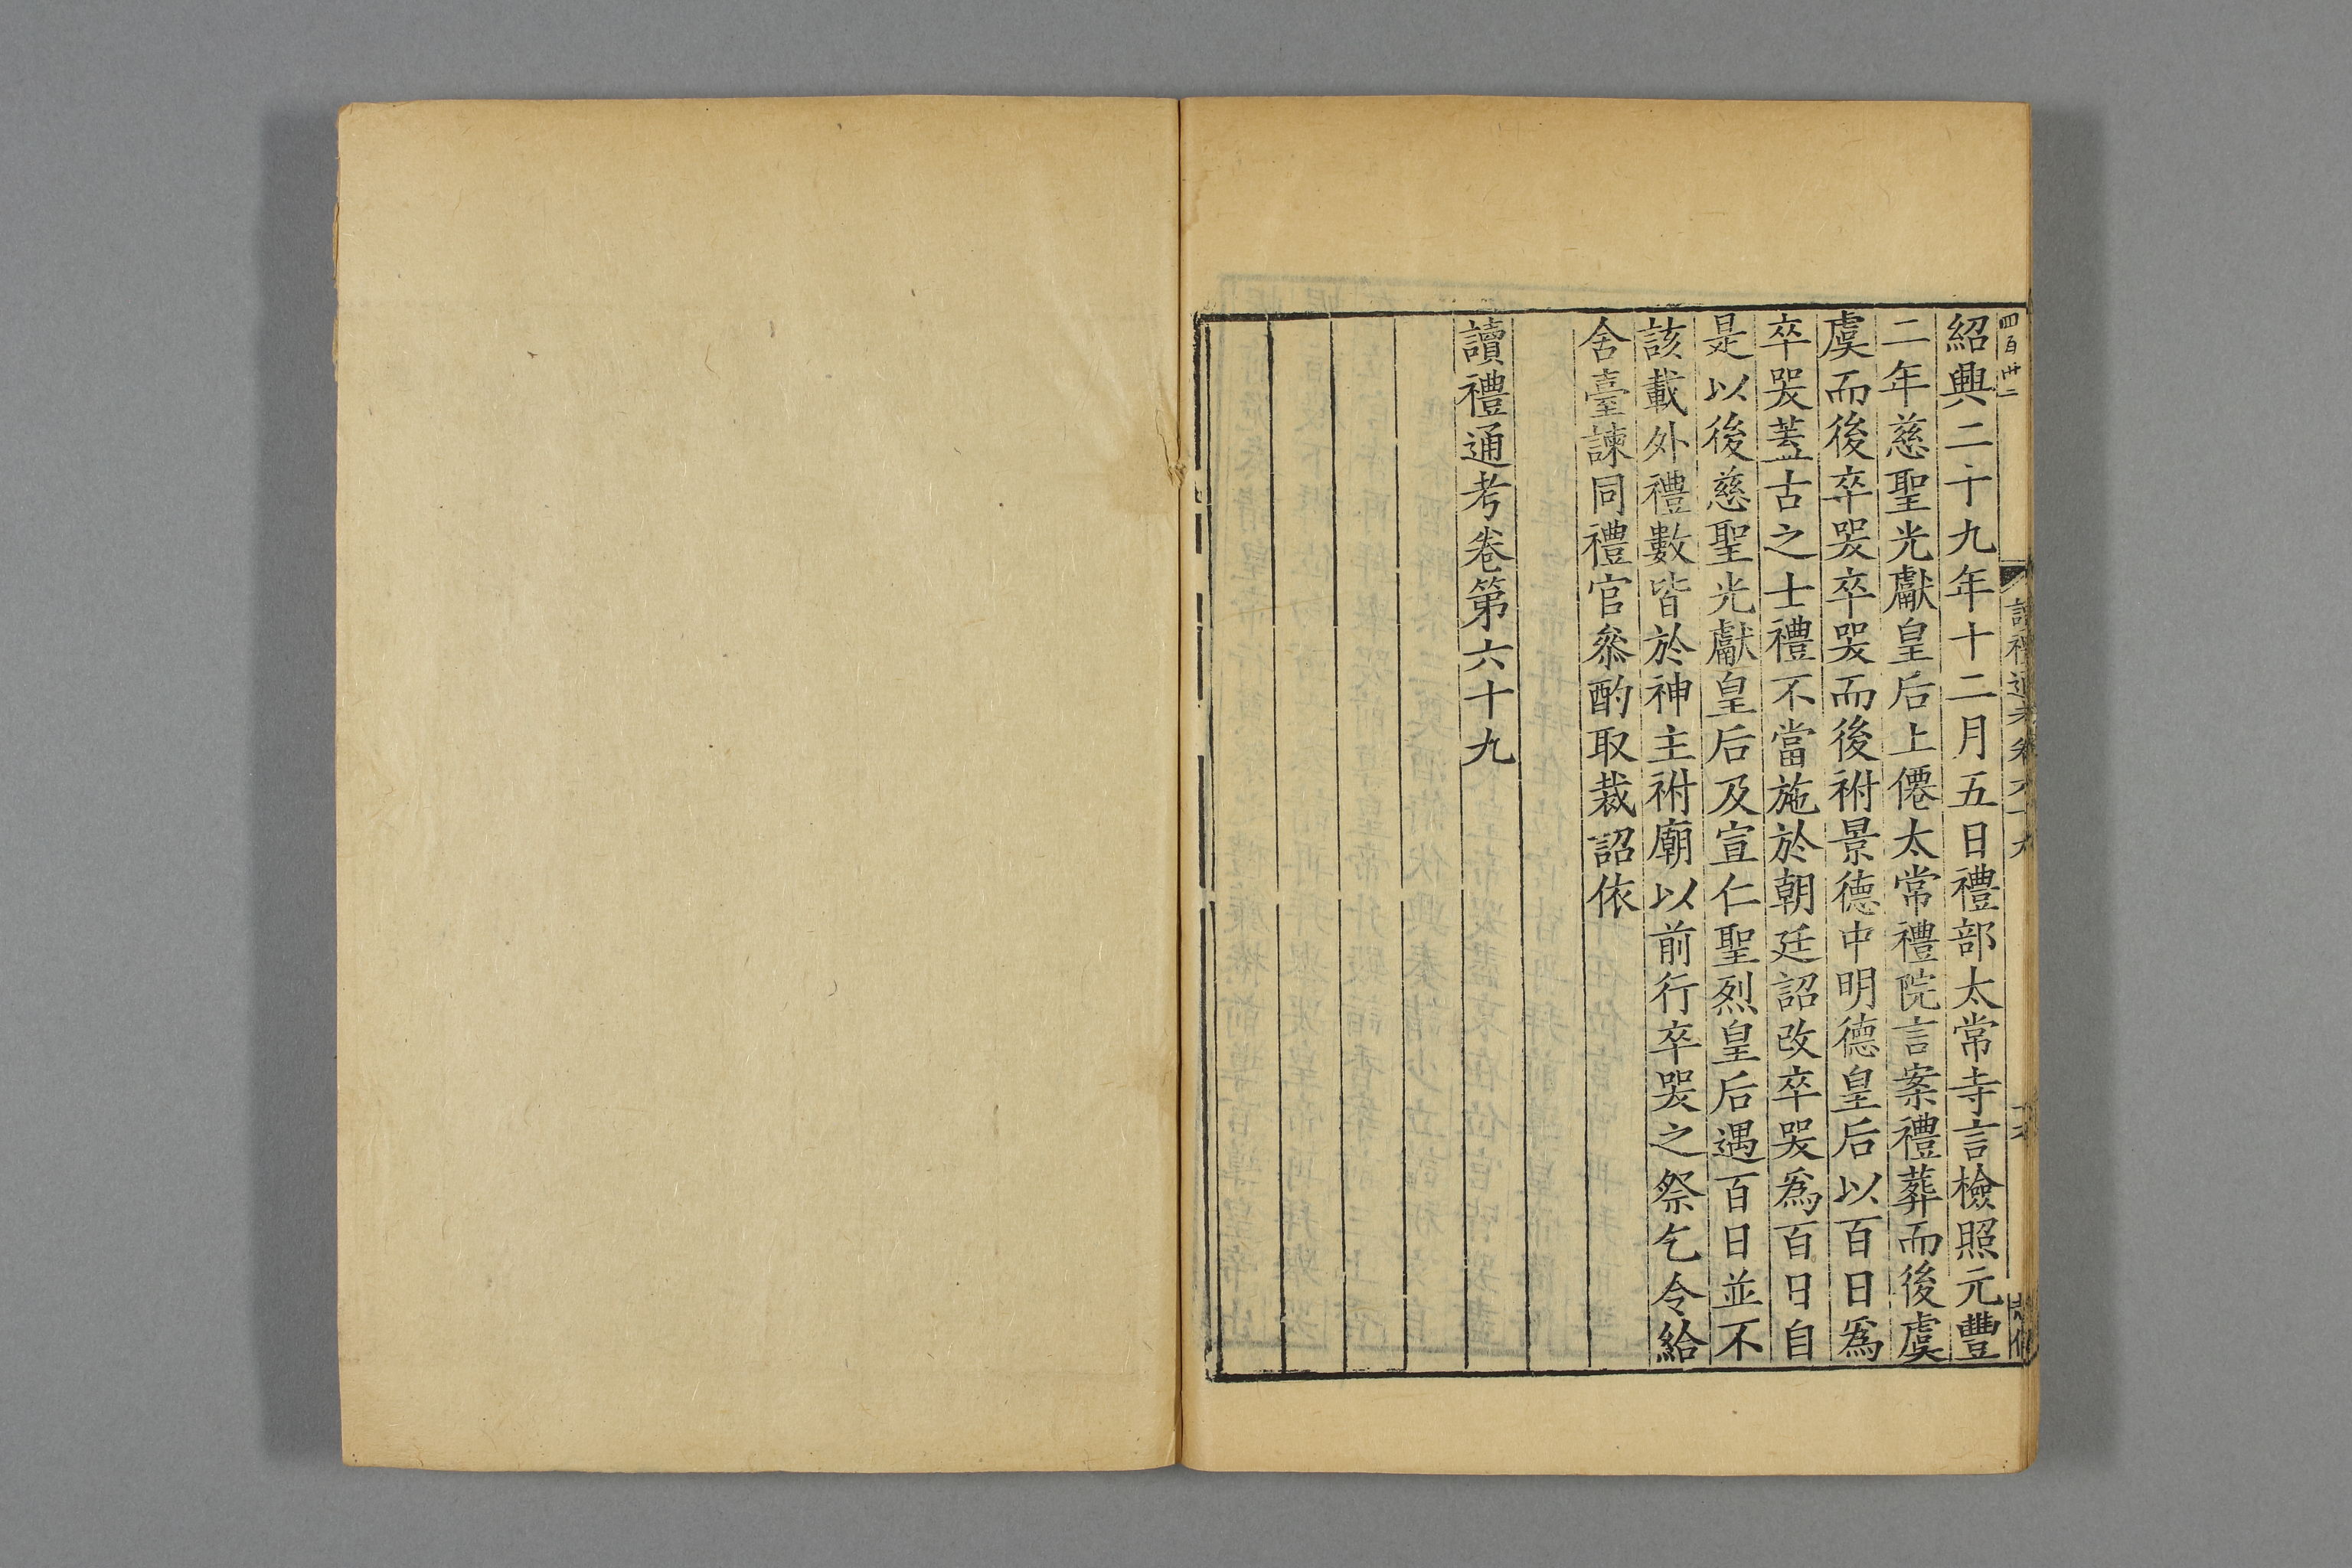 四百卅二
紹興二十九年十二月五日禮部太常寺言檢照元豐
二年慈聖光獻皇后上僊太常禮院言案禮葬而後虞
虞而後卒哭卒哭而後祔景德中明德皇后以百日爲
卒哭葢古之士禮不當施於朝廷詔改卒哭爲百日自
是以後慈聖光獻皇后及宣仁聖烈皇后遇百日並不
該載外禮數皆於神主祔廟以前行卒哭之祭乞令給
舍臺諫同禮官叅酌取裁詔依
讀禮通考卷第六十九